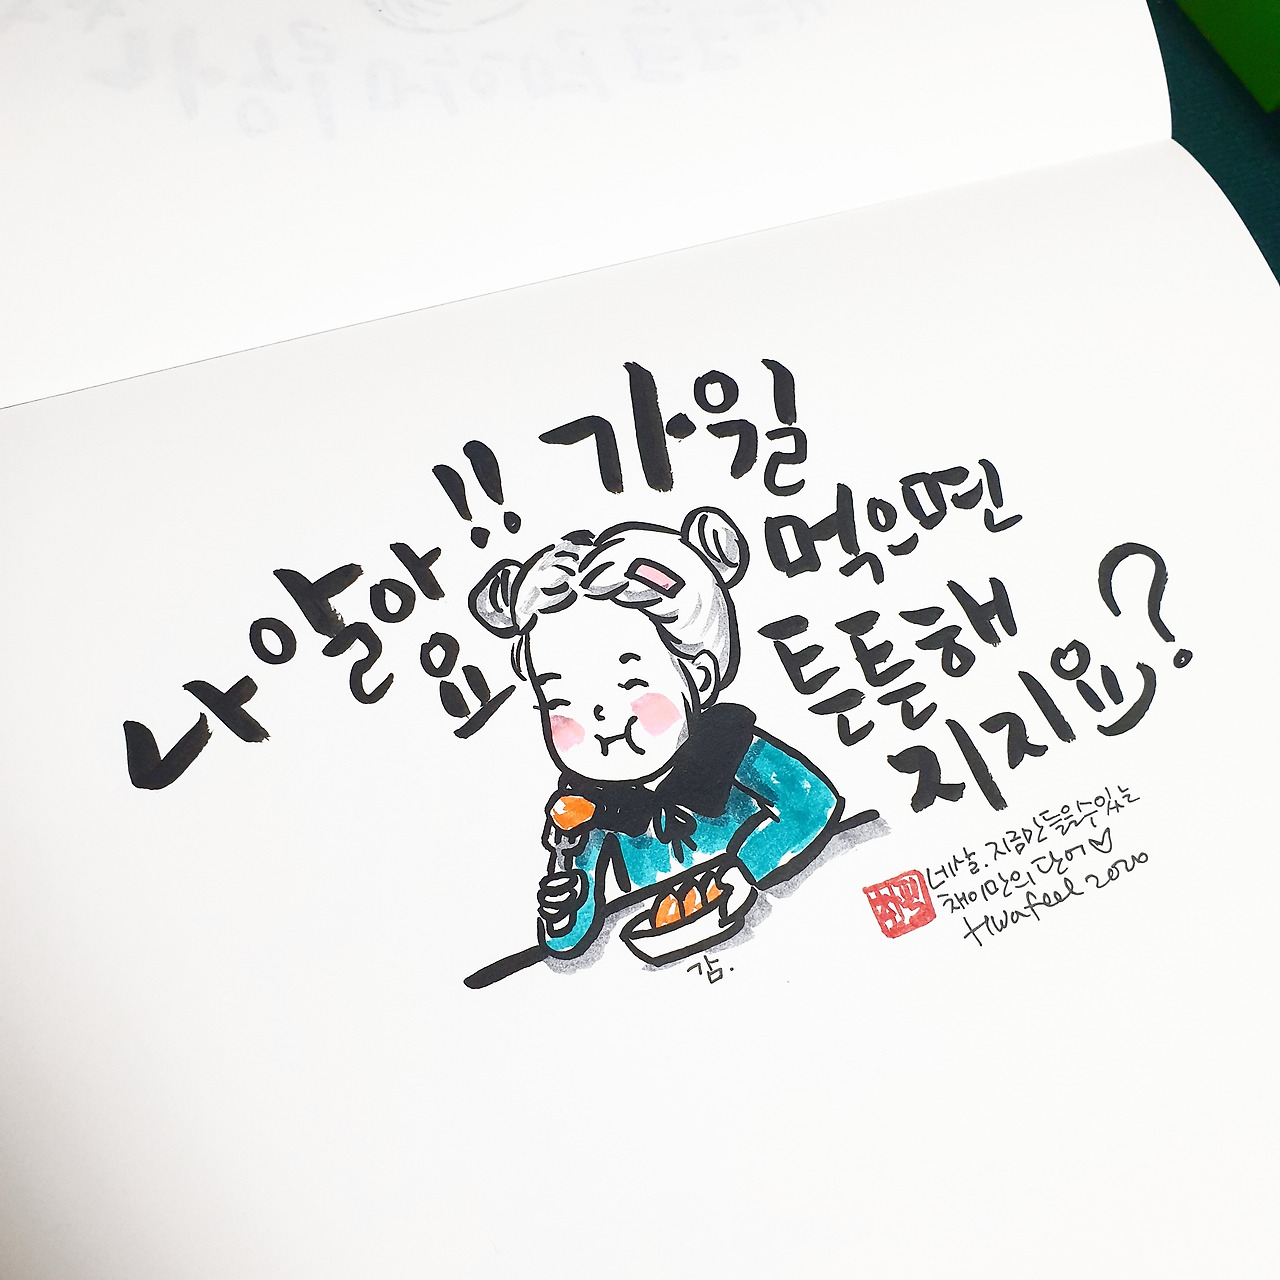 나 알아요!!
가·일
먹으면
튼튼해
지지요?
감.
네살. 지금만 들을수있는
채이만의 단어♡
Hwafeel 2020